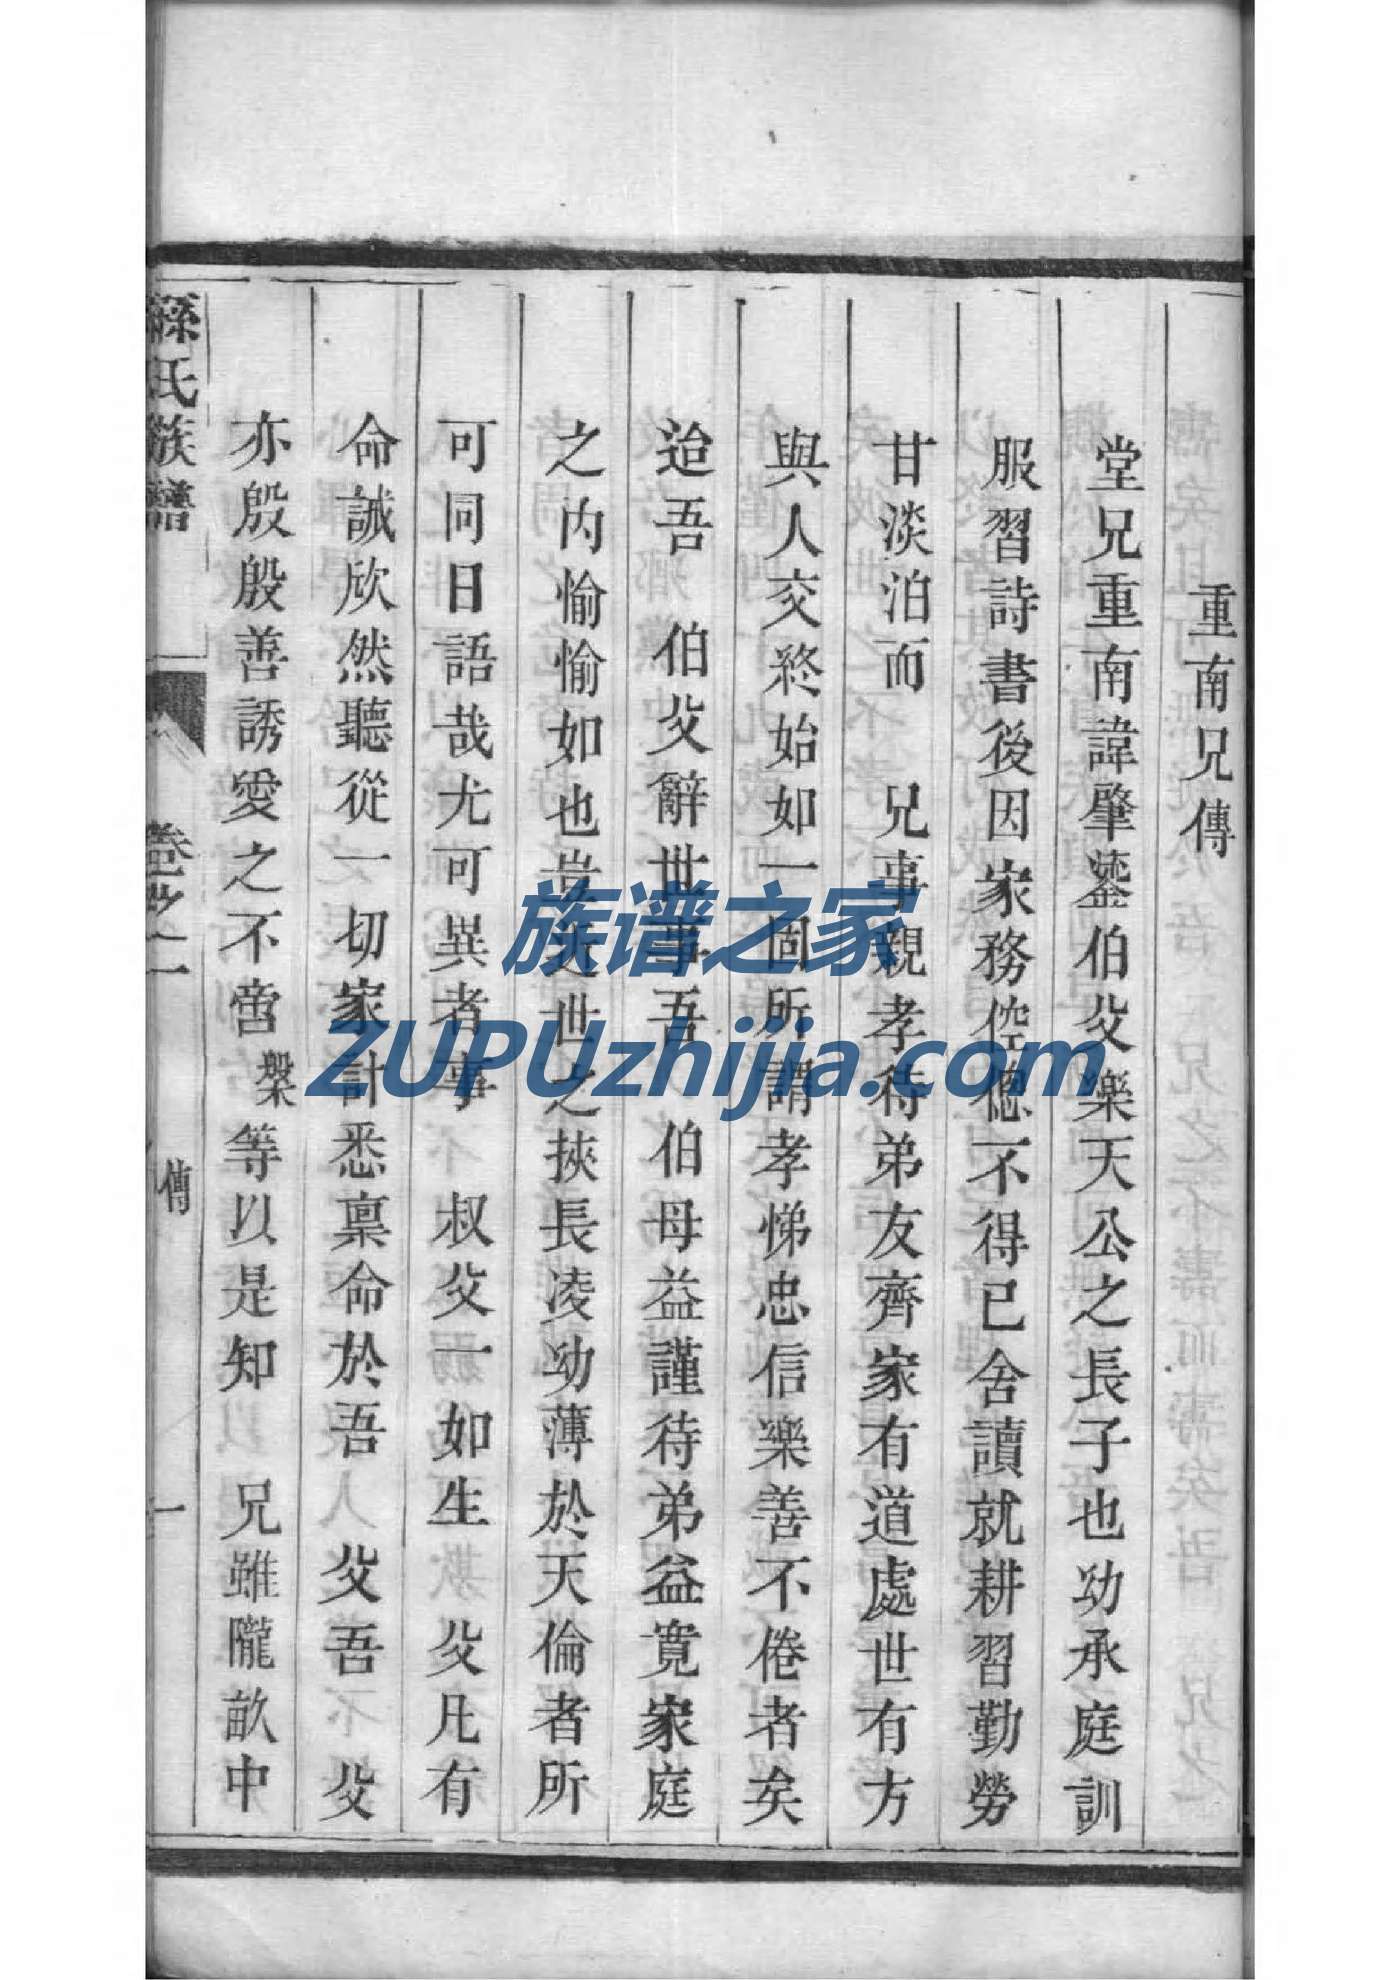 重南兄傳
堂兄重南諱肇鎏伯父樂天公之長子也幼承庭訓
服習詩書後因家務倥傯不得已舍讀就耕習勤勞
甘淡泊而 兄事親孝待弟友齊家有道處世有方
與人交終始如一固所謂孝悌忠信樂善不倦者矣
迨吾 伯父辭世事吾 伯母益謹待弟益寬家庭
之内愉愉如也豈一世之挾長凌幼薄於天倫者所
可同日語哉尤可異者事 叔父一如生 父凡有
命誡欣然聽從一切家計悉禀命於吾 父吾 父
亦殷殷善誘愛之不啻槃等以是知 兄雖隴畝中
蘇氏族譜
卷之一
傳
一
族谱之家
ZUPUzhijia.com